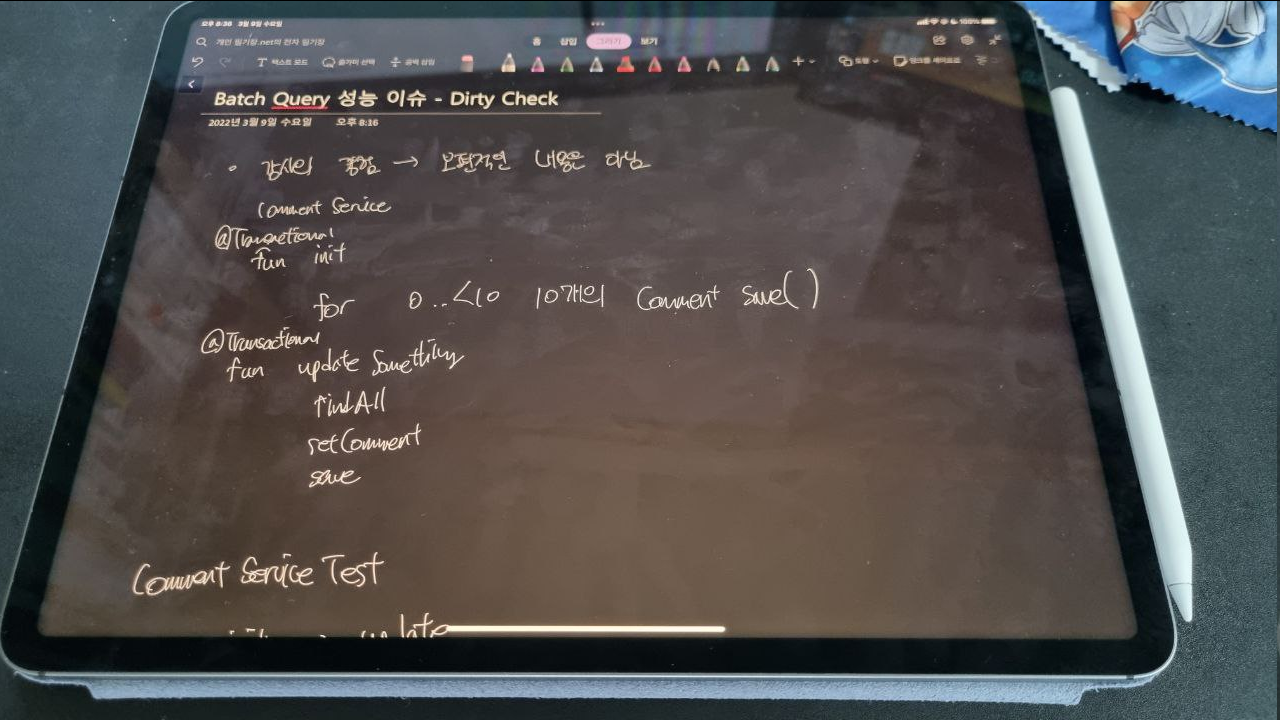 오후 8:36 3월 9일 수요일
개인 필기장.net의 전자 필기장
홈 삽입 그리기 보기
텍스트 모드 올가미 선택 공백 삽입 도형 잉크를 셰이프로
Batch Query 성능 이슈 - Dirty Check
2022년 3월 9일 수요일 오후 8:16
강사의 경험 → 보편적인 내용은 아님
Comment Service
@Transactional
fun init
for 0..<10 10개의 Comment save()
@Transactional
fun update Something
findAll
setComment
save
Comment Service Test
update